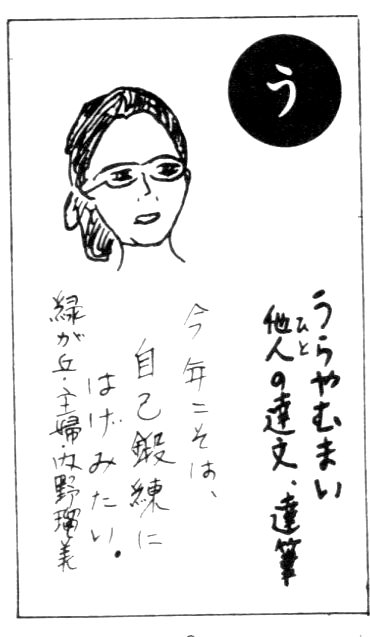 う
うらやむまい
他人の達文・達筆
ひと
今年こそは、
自己鍛練に
はげみたい。
緑が丘・主婦・内野瑠美